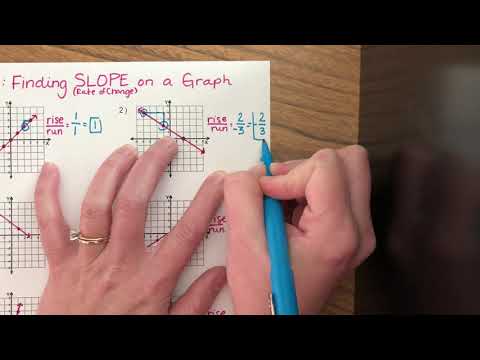 : Finding SLOPE on a Graph
(Rate of Change)
rise/run = 1/1 = 1
2) rise/run = 2/-3 = -2/3
rise
run
rise
run